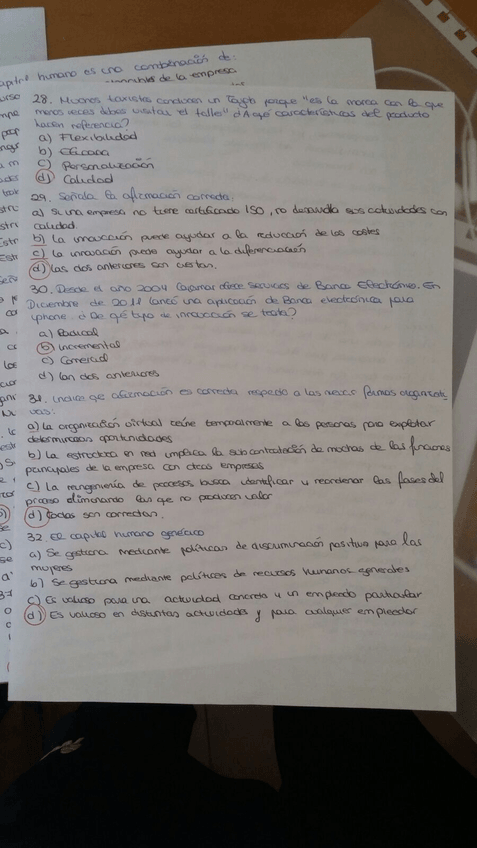 capital humano es una combinación de:
de la empresa
28. Muchos taxistas conducen un Toyota porque "es la marca con la que
menos veces debes visitar el taller" ¿A qué características del producto
hacen referencia?
a) Flexibilidad
b) Eficacia
c) Personalización
d) Calidad
29. Señala la afirmación correcta:
a) Si una empresa no tiene certificado ISO, no desarrolla sus actividades con
calidad.
b) La innovación puede ayudar a la reducción de los costes
c) La innovación puede ayudar a la diferenciación
d) Las dos anteriores son ciertas.
30. Desde el año 2004 Cajamar ofrece servicios de Banca Electrónica. En
Diciembre de 2011 lanzó una aplicación de Banca electrónica para
iphone. ¿De qué tipo de innovación se trata?
a) Radical
b) Incremental
c) Comercial
d) Las dos anteriores
31. Indica qué afirmación es correcta respecto a las nuevas formas organizati-
vas:
a) La organización virtual reúne temporalmente a las personas para explotar
determinadas oportunidades
b) La estructura en red implica la subcontratación de muchas de las funciones
principales de la empresa con otras empresas
c) La reingeniería de procesos busca identificar y reordenar las fases del
proceso eliminando las que no producen valor
d) Todas son correctas.
32. El capital humano genérico
a) Se gestiona mediante políticas de discriminación positiva para las
mujeres
b) Se gestiona mediante políticas de recursos humanos generales
c) Es valioso para una actividad concreta y un empleado particular
d) Es valioso en distintas actividades y para cualquier empleador